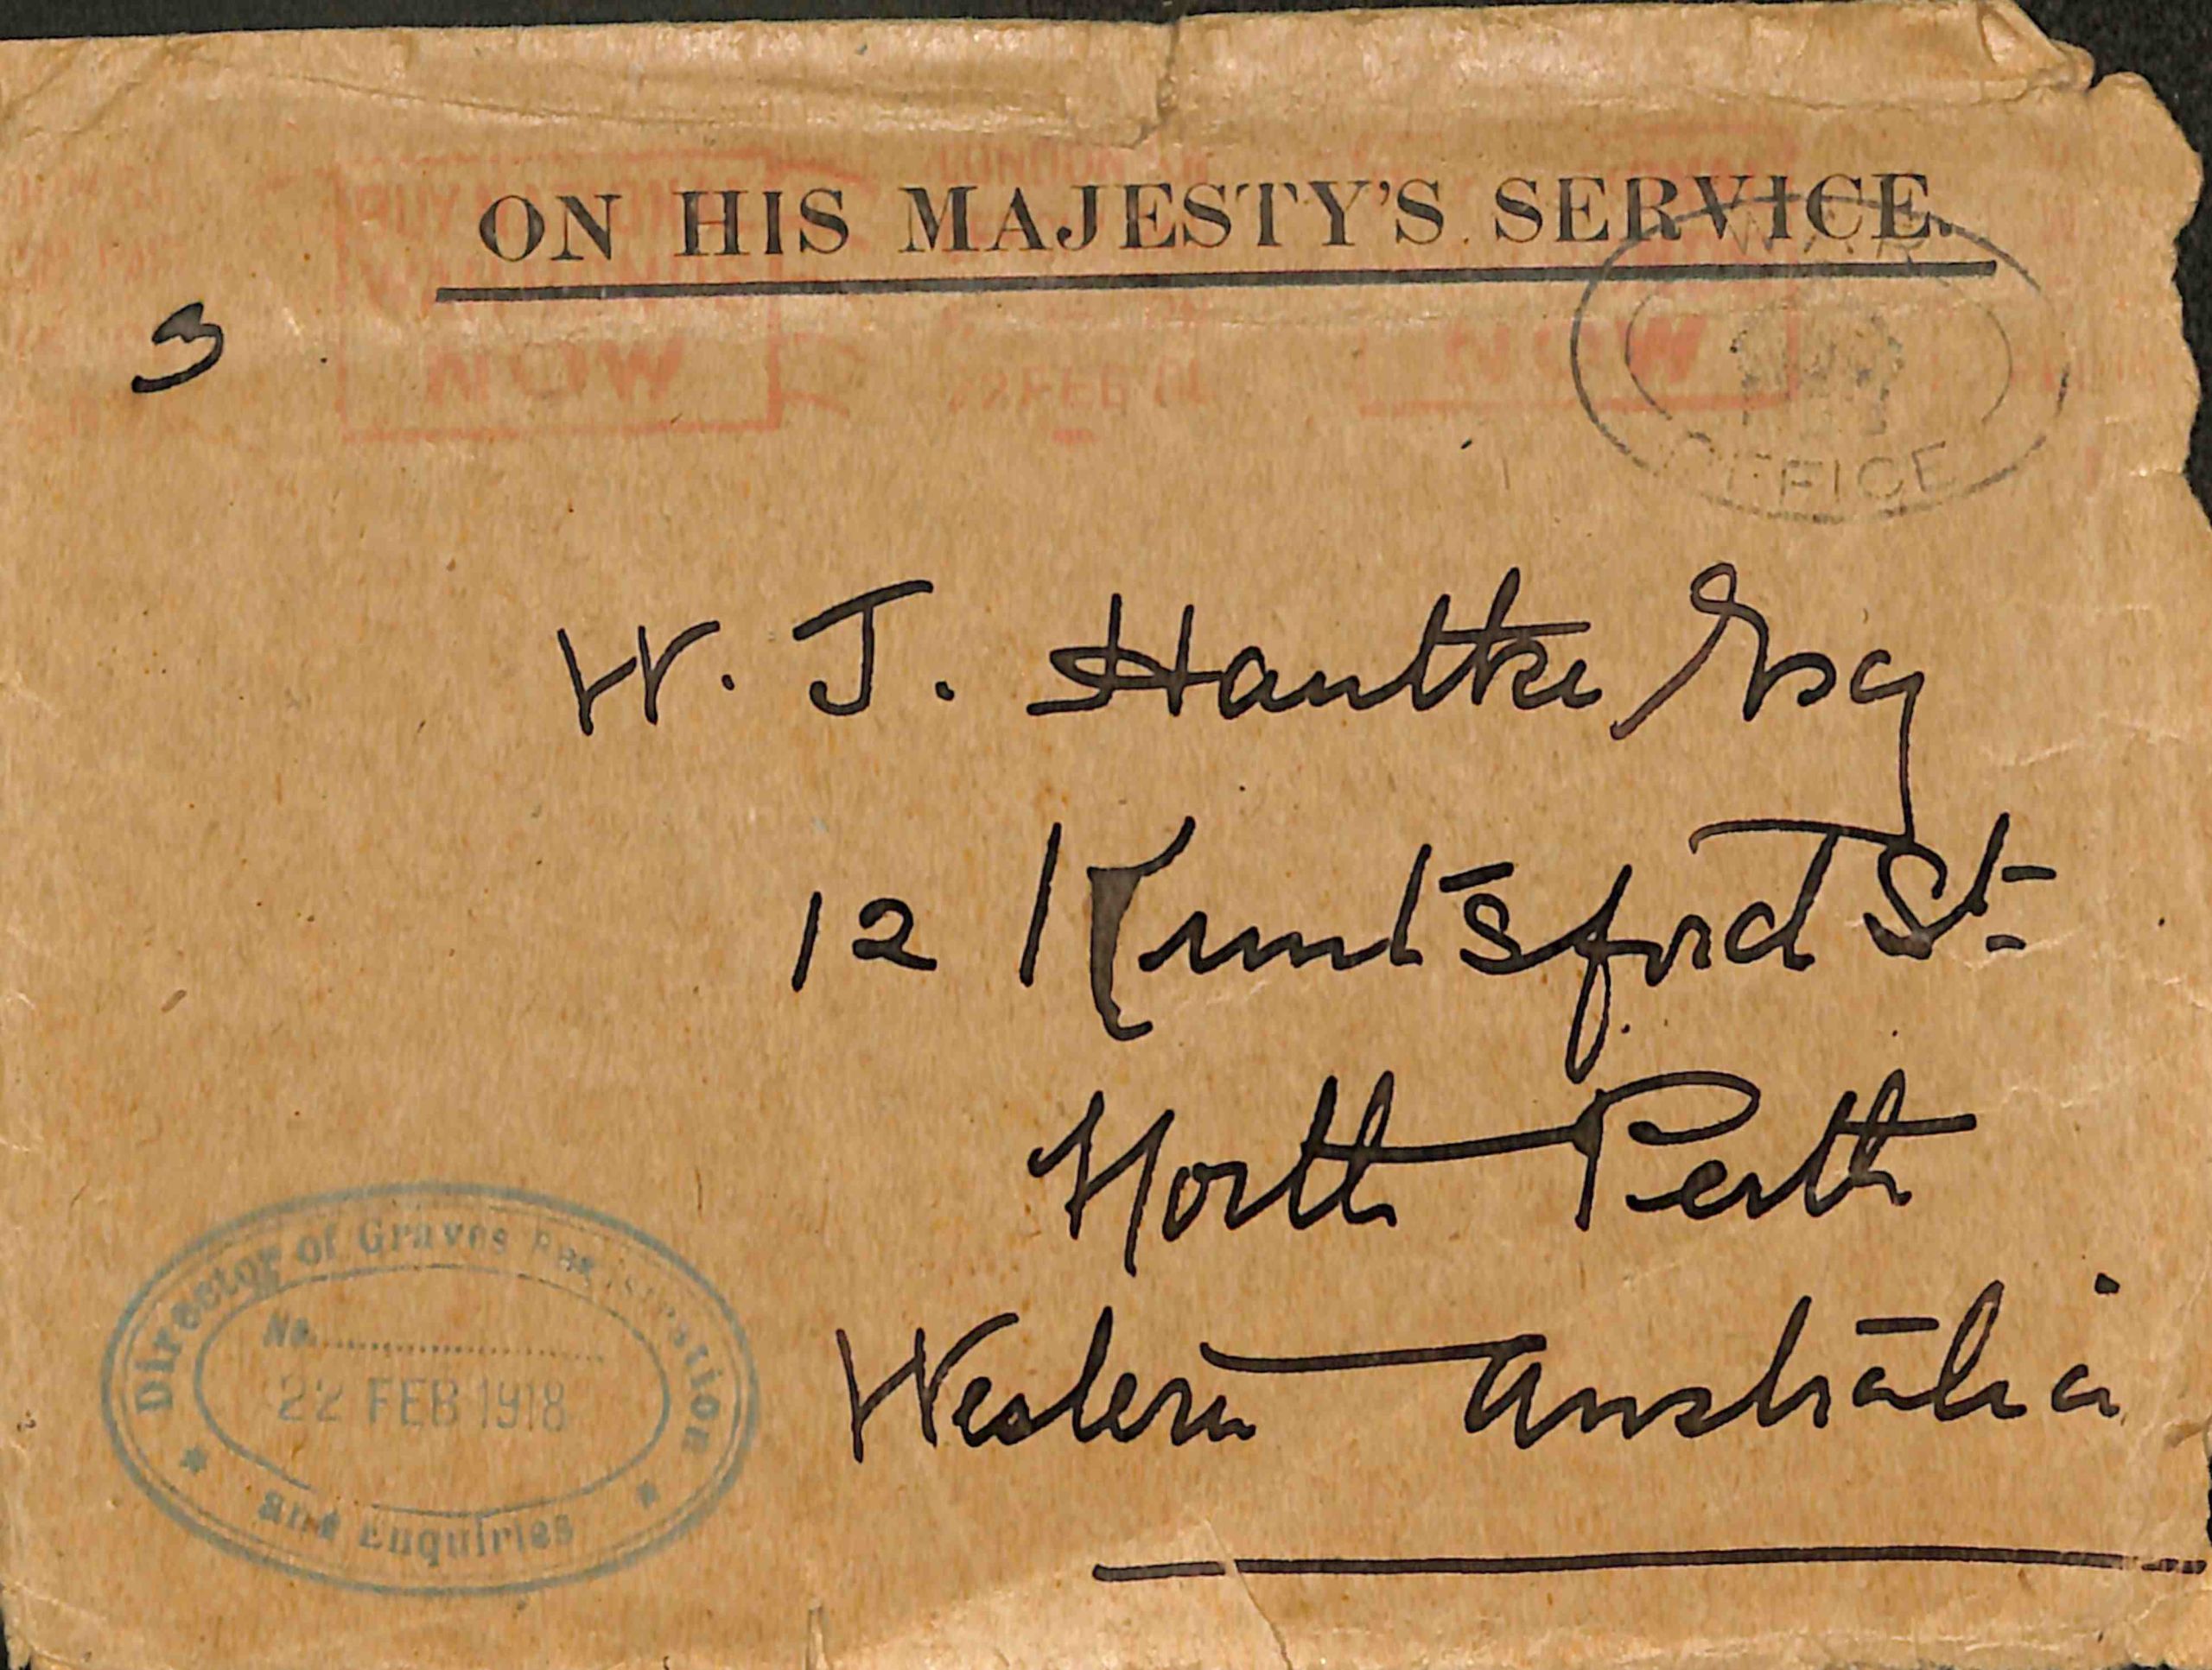 ON HIS MAJESTY'S SERVICE.
BUY
NOW
LONDON
22 FEB
NOW
WAR
OFFICE
3
W. J. Hantke Esq
12 Kuntsford St.
North Perth
Western Australia
Director of Graves Registration
No.
22 FEB 1918
and Enquiries